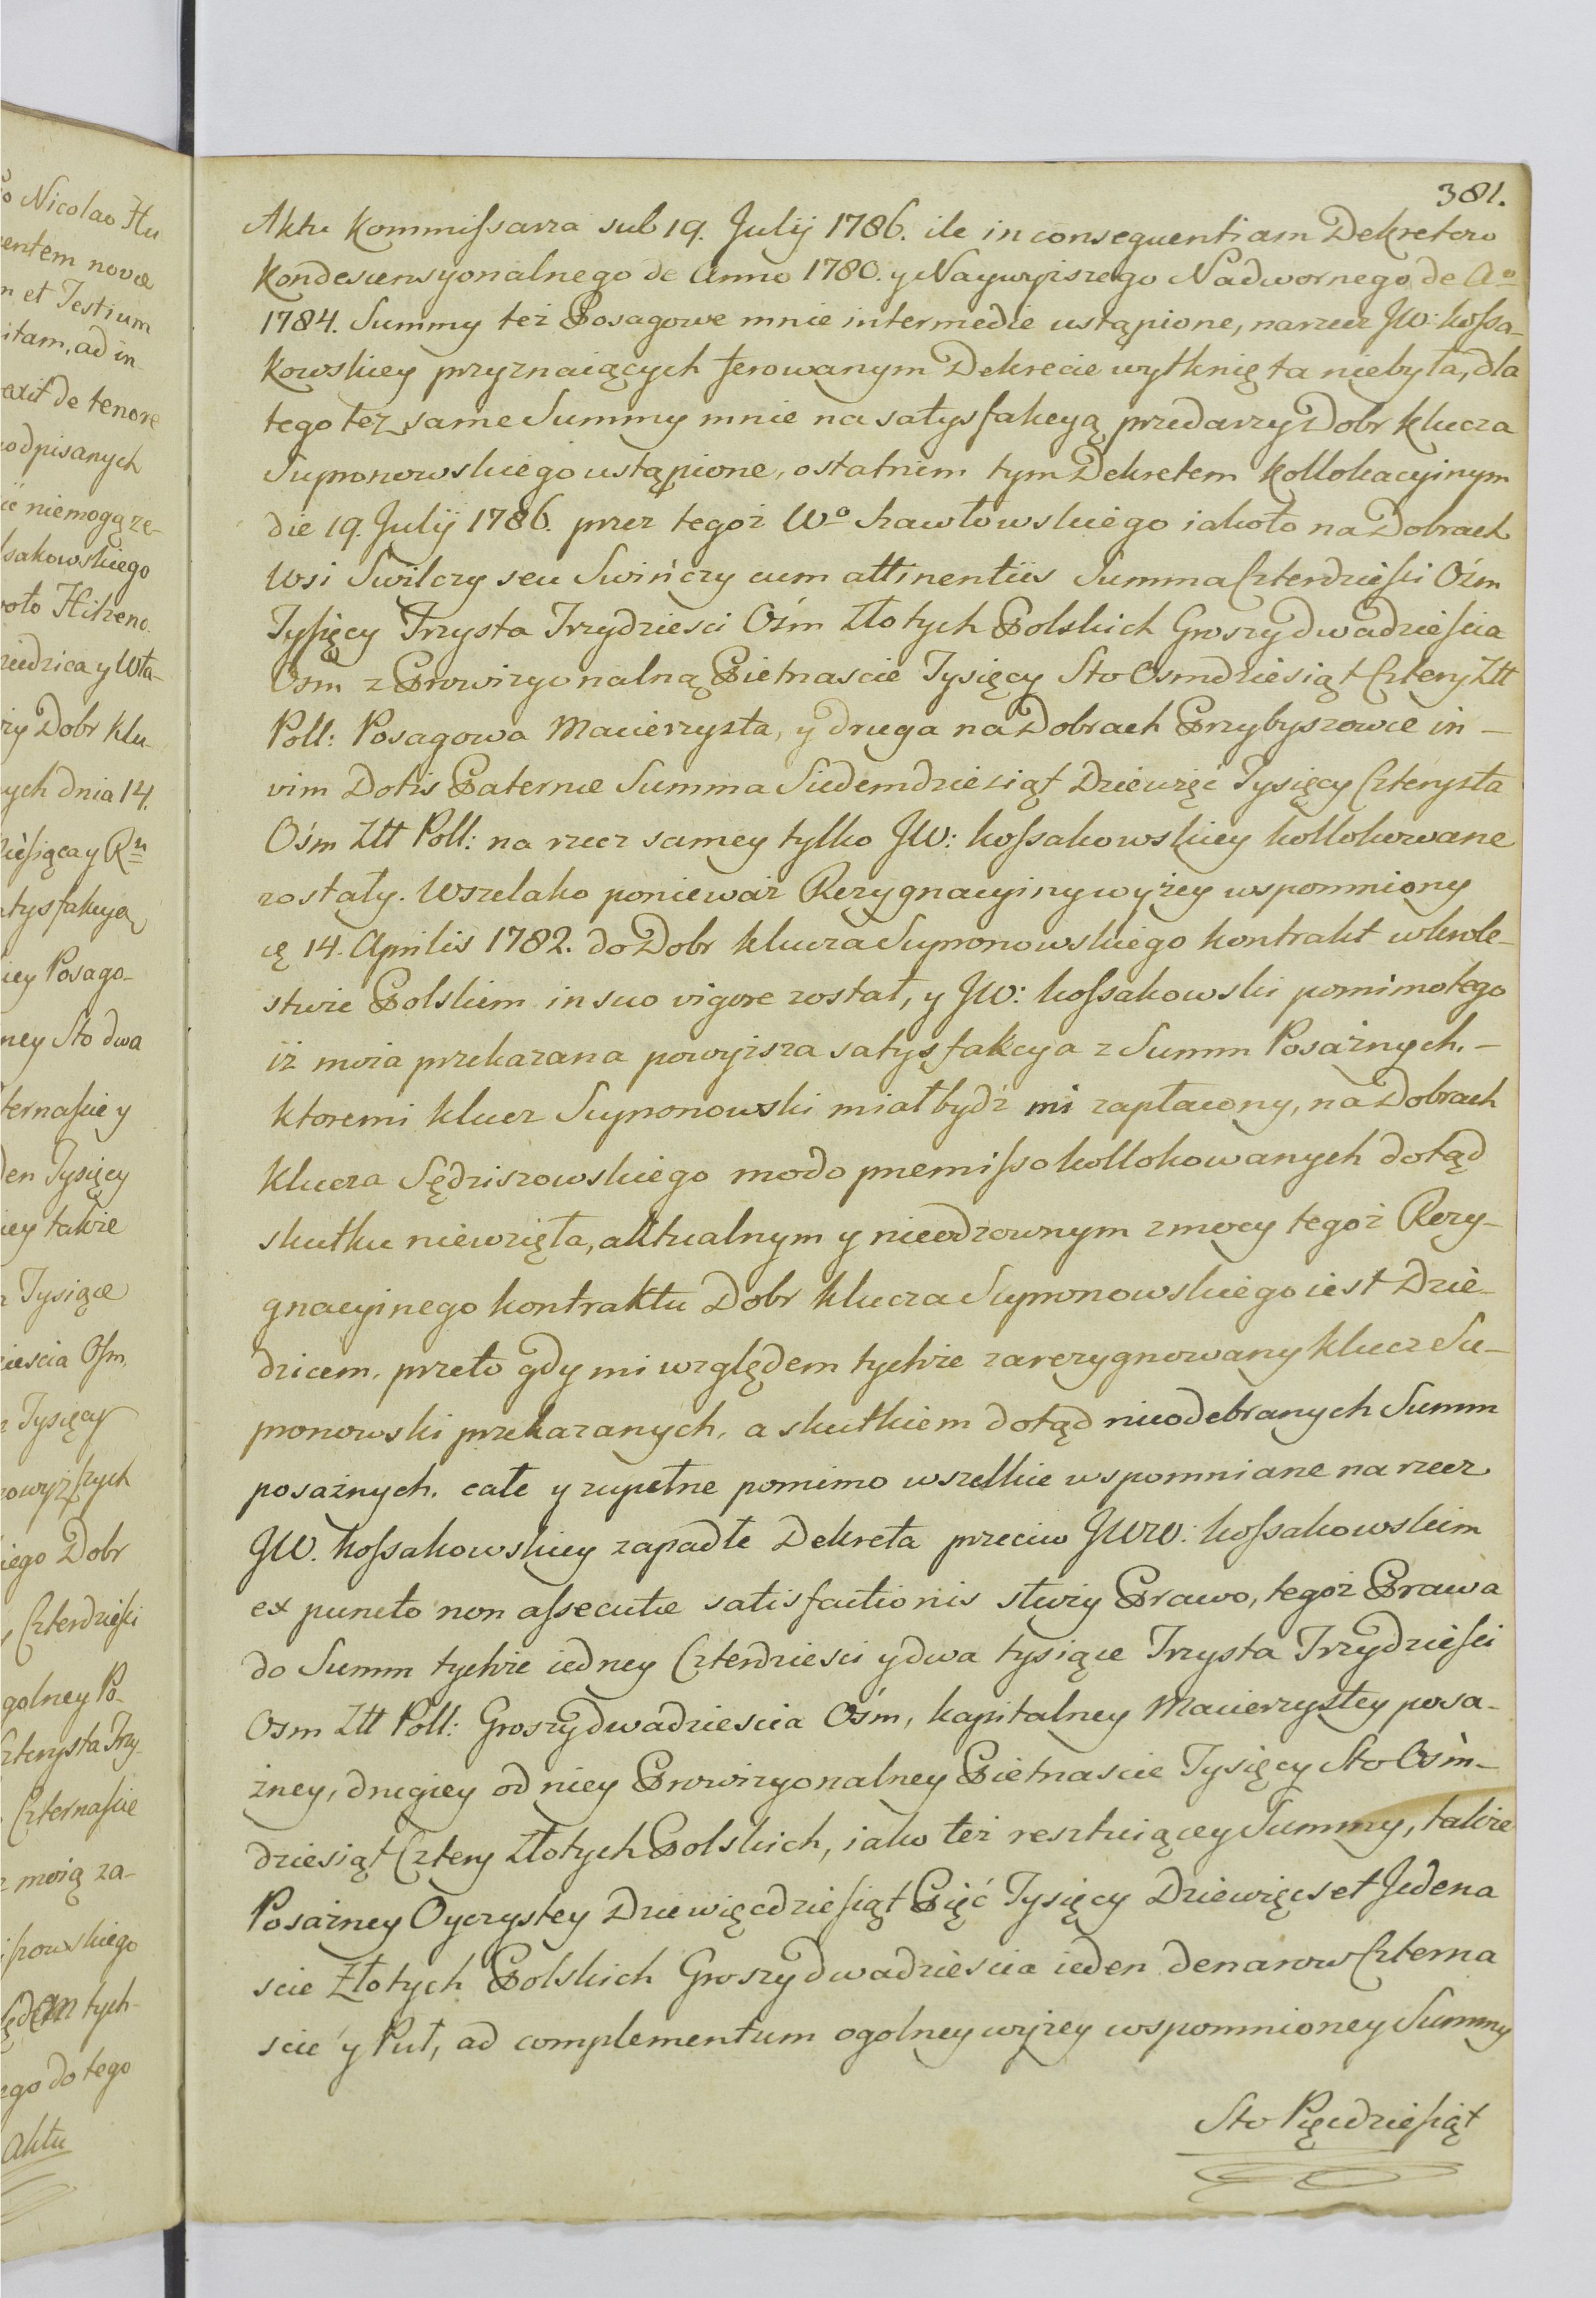 381.
Aktu Kommissarza sub 19. Julij 1786. ile in consequentiam Dekretow
Kondescensyonalnego de Anno 1780. y Naywyiszego Nadwornego de Aº
1784. Summy też Posagowe mnie intermedie ustąpione, na rzecz JW: Kossa-
kowskiey przyznaiących ferowanym Dekrecie wytknięta niebyła, dla
tego też same Summy mnie na satysfakcyą przedarzy Dobr Klucza
Suponowskiego ustąpione, ostatnim tym Dekretem Kollokacyinym
die 19. Julij 1786. przez tegoż Wº Szawłowskiego iakoto na Dobrach
Wsi Swilczy seu Swińczy cum attinentiis Summa Czterdzieści Ośm
Tysięcy Trzysta Trzydziesci Ośm Złotych Polskich Groszy dwadzieścia
Ośm z Prowizyonalną Pietnascie Tysięcy Sto Osmdziesiąt Cztery Złł
Poll: Posagowa Macierzysta, y druga na Dobrach Przybyszowce in
vim Dotis Paternæ Summa Siedemdziesiąt Dziewięć Tysięcy Czterysta
Ośm Złł Poll: na rzecz samey tylko JW: Kossakowskiey kollokowane
zostały. Wszelako ponieważ Rezygnacyiny wyżey wspomniony
14. Aprilis 1782. do Dobr Klucza Suponowskiego Kontrakt w Krole-
stwie Polskim in suo vigore został, y JW: Kossakowski pomimo tego
iż moia przekazana powyższa satysfakcya z Summ Posażnych. -
ktoremi Klucz Suponowski miał bydź mi zapłacony, na Dobrach
Klucza Sędziszowskiego modo præmisso kollokowanych dotąd
skutku niewzięła, aktualnym y nieodzownym z mocy tegoż Rezy-
gnacyinego kontraktu Dobr Klucza Suponowskiego iest Dzie-
dzicem. przeto gdy mi względem tychże zarezygnowany Klucz Su-
ponowski przekazanych, a skutkiem dotąd nieodebranych Summ
posażnych. całe y zupełne pomimo wszelkie wspomniane na rzecz
JW. Kossakowskiey zapadłe Dekreta przeciw JWW: Kossakowskim
ex puncto non assecutæ satisfactionis służy Prawo, tegoż Prawa
do Summ tychże iedney Czterdziesci y dwa tysiące Trzysta Trzydzieści
Osm Złł Poll: Groszy dwadziescia Ośm, kapitalney Macierzystey posa-
żney, drugiey od niey Prowizyonalney Pietnascie Tysięcy Sto Ośm-
dziesiąt Cztery Złotych Polskich, iako też resztuiącey Summy, także
Posażney Oyczystey Dziewięcdziesiąt Pięć Tysięcy Dziewięcset Jedena
scie Złotych Polskich Groszy dwadziescia ieden denarow Czterna
scie y Puł, ad complementum ogolney wyżey wspomnioney Summy
Sto Pięcdziesiąt